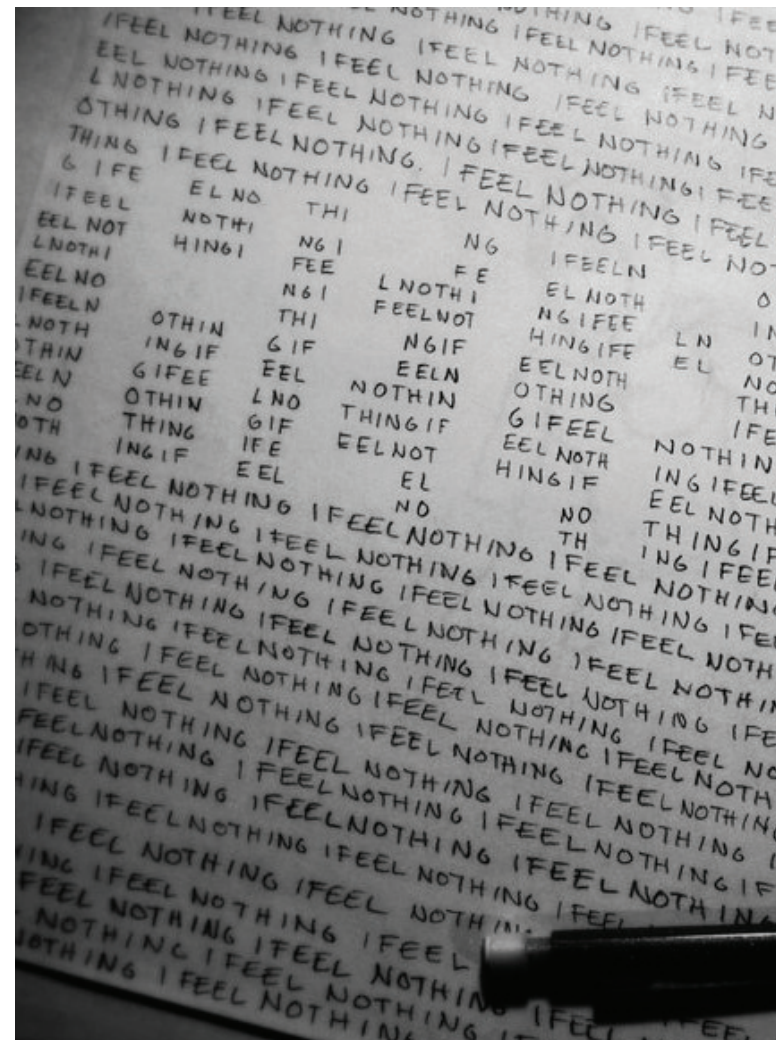 IFEE
THING IFEEL NOT
NOTHING IFEEL NOTHING IFEE
IFEEL NOTHING IFEEL NOTHING IFEEL N
IFEEL NOTHING IFEEL NOTHING IFEEL NOTHING
EEL NOTHING IFEEL NOTHING IFEEL NOTHING IFE
L NOTHING IFEEL NOTHING IFEEL NOTHING IFEE
OTHING IFEEL NOTHING. IFEEL NOTHING IFEEL
THING IFEEL NOTHING IFEEL NOTHING IFEEL NOT
G IFE EL NO THI NG IFEELN O
IFEEL NOTHI NGI FE ELNOTH IN
EEL NOT HINGI FEE LNOTHI NGIFEE LN OT
LNOTHI NGI FEELNOT HINGIFE EL NO
EELNO THI NGIF EELNOTH THI
IFEELN OTHIN GIF EELN OTHING IFE
LNOTH INGIF EEL NOTHIN GIFEEL NOTHIN
THIN GIFEE LNO THINGIF EELNOTH INGIFEEL
EELN OTHIN GIF EELNOT HINGIF EELNOTH
NO THING IFE EL NO THINGIF
OTH INGIF EEL NO TH INGIFEEL
ING IFEEL NOTHING IFEEL NOTHING IFEEL NOTHING
IFEEL NOTHING IFEEL NOTHING IFEEL NOTHING IFEE
LNOTHING IFEEL NOTHING IFEEL NOTHING IFEEL NOTH
ING IFEEL NOTHING IFEEL NOTHING IFEEL NOTHIN
IFEEL NOTHING IFEEL NOTHING IFEEL NOTHING IFE
NOTHING IFEELNOTHING IFEEL NOTHING IFEEL NO
OTHING IFEEL NOTHING IFEEL NOTHING IFEEL NOTH
HING IFEEL NOTHING IFEEL NOTHING IFEELNOTHING
IFEEL NOTHING IFEEL NOTHING IFEEL NOTHING I
FEELNOTHING IFEELNOTHING IFEELNOTHING IF
IFEEL NOTHING IFEELNOTHING IFEELNOTHING
HING IFEELNOTHING IFEEL NOTHING IFEEL
IFEEL NOTHING IFEEL NOTHIN
HING IFEEL NOTHING IFEEL
FEEL NOTHING IFEEL NOTHIN
NOTHING IFEEL NOTHING IFEEL
NOTHING IFEEL NOTHING